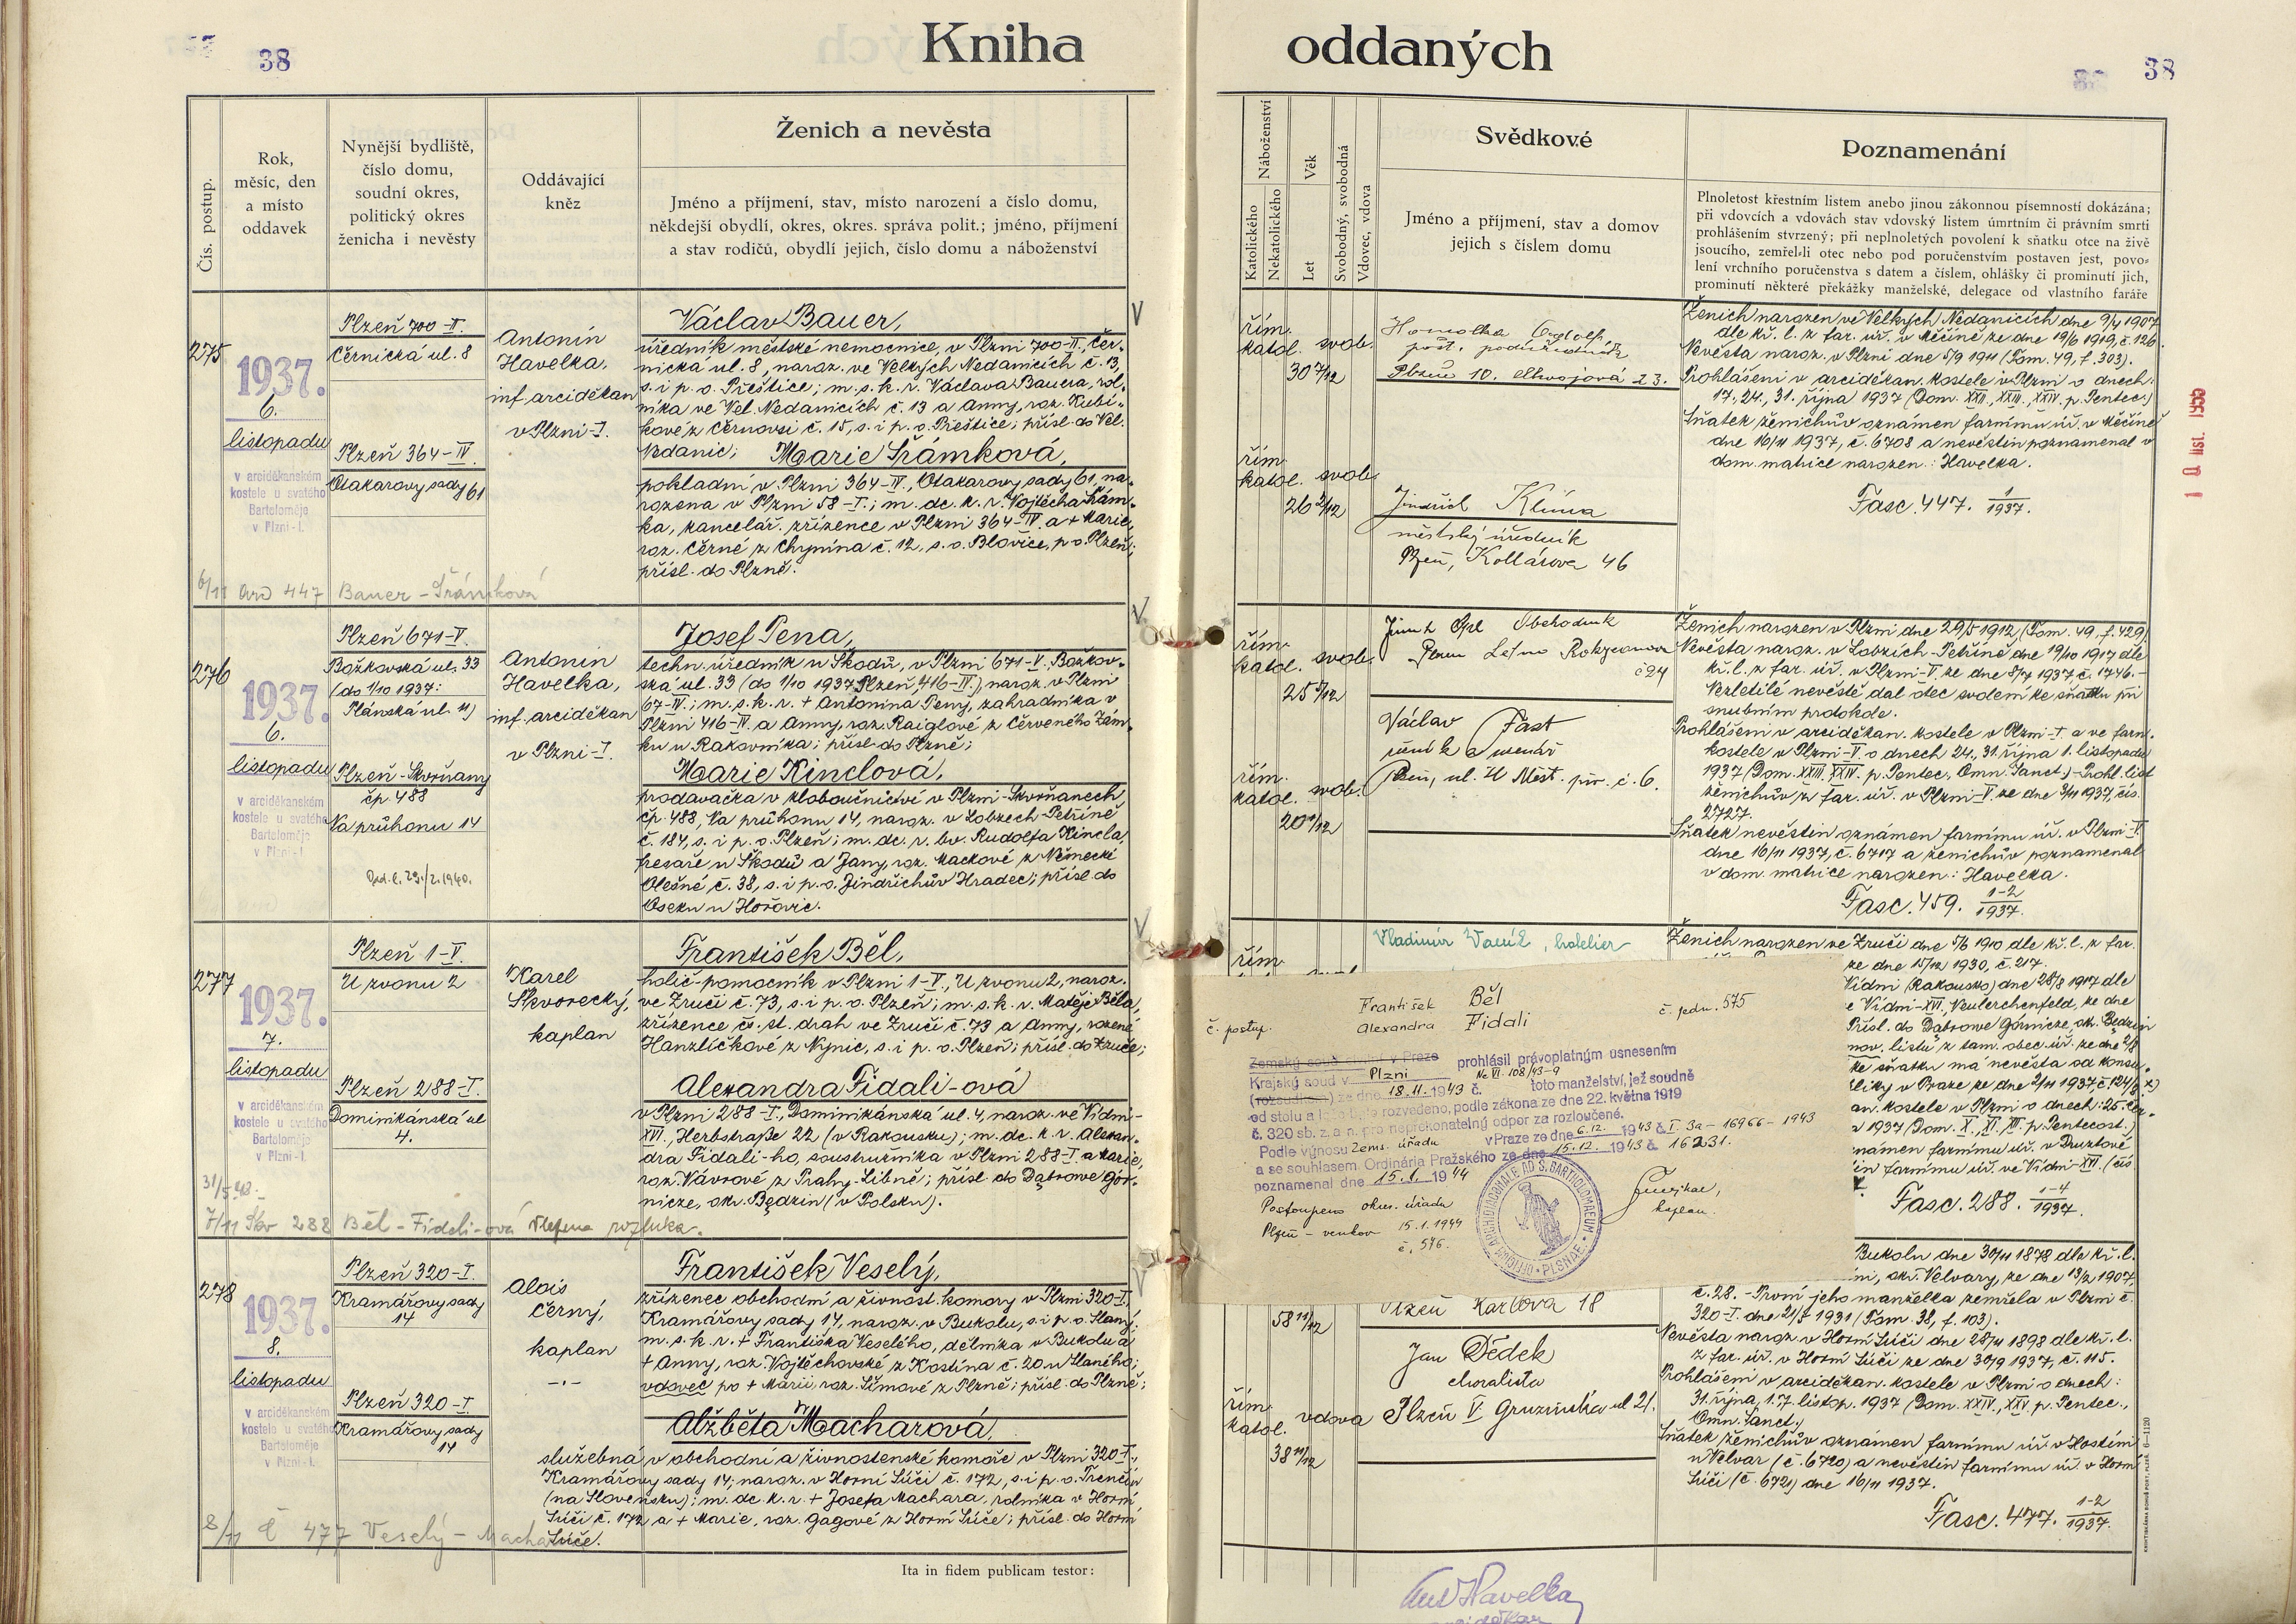 38
Kniha
oddaných
38
Čís. postup.
Rok,
měsíc, den
a místo
oddavek
Nynější bydliště,
číslo domu,
soudní okres,
politický okres
ženicha i nevěsty
Oddávající
kněz
Ženich a nevěsta
Jméno a příjmení, stav, místo narození a číslo domu,
někdejší obydlí, okres, okres. správa polit.; jméno, příjmení
a stav rodičů, obydlí jejich, číslo domu a náboženství
275
1937.
6.
listopadu
v arciděkanském
kostele u svatého
Bartoloměje
v Plzni-I.
Plzeň 700-II.
Černická ul. 8
Plzeň 364-IV.
Otakarovy sady 61
Antonín
Havelka,
inf. arciděkan
v Plzni-I.
Václav Bauer,
úředník městské nemocnice, v Plzni 700-II, Čer-
nická ul. 8, naroz. ve Velkých Nedanicích č. 13,
s. i p. o. Přeštice; m. s. k. r. Václava Bauera, rol-
níka ve Vel. Nedanicích č. 13 a Anny, roz. Kubí-
kové z Černovsi č. 15, s. i p. o. Přeštice; přísl. do Vel.
Nedanic;
Marie Šrámková,
pokladní v Plzni 364-IV., Otakarovy sady 61, na-
rozena v Plzni 58-I.; m. dc. k. r. Vojtěcha Šrám-
ka, kancelář. zřízence v Plzni 364-IV. a + Marie,
roz. Černé z Chynína č. 12, s. o. Blovice, p. o. Plzeň;
přísl. do Plzně.
6/11 447 Bauer - Šrámková
276
1937.
6.
listopadu
v arciděkanském
kostele u svatého
Bartoloměje
v Plzni-I.
Plzeň 671-V.
Božkovská ul. 33
(do 1/10 1937:
Plánská ul. 11)
Plzeň-Skvrňany
čp. 488
Na průhonu 14
Odd. l. 29./2. 1940.
Antonín
Havelka,
inf. arciděkan
v Plzni-I.
Josef Pena,
techn. úředník u Škodů, v Plzni 671-V. Božkov-
ská ul. 33 (do 1/10 1937 Plzeň 416-IV.) naroz. v Plzni
67-IV.; m. s. k. r. + Antonína Peny, zahradníka v
Plzni 416-IV. a Anny, roz. Raiglové z Červeného Zám-
ku u Rakovníka; přísl. do Plzně;
Marie Kinclová,
prodavačka v kloboučnictví v Plzni-Skvrňanech
čp. 488, Na průhonu 14, naroz. v Lobzech-Petříně
č. 184, s. i p. o. Plzeň; m. dc. r. bv. Rudolfa Kincla,
fresaře u Škodů a Jany, roz. Mackové z Německé
Olešné č. 38, s. i p. o. Jindřichův Hradec; přísl. do
Oseku u Hořovic.
277
1937.
7.
listopadu
v arciděkanském
kostele u svatého
Bartoloměje
v Plzni-I.
Plzeň 1-V.
U zvonu 2
Plzeň 288-I.
Dominikánská ul
4.
Karel
Škvorecký,
kaplan
František Běl,
holič-pomocník v Plzni 1-V., U zvonu 2, naroz.
ve Zruči č. 73, s. i p. o. Plzeň; m. s. k. r. Matěje Běla,
zřízence čs. st. drah ve Zruči č. 73 a Anny, rozené
Hanzlíčkové z Nynic, s. i p. o. Plzeň; přísl. do Zruče;
Alexandra Fidali-ová
v Plzni 288-I., Dominikánská ul. 4, naroz. ve Vídni-
XVI., Herbstraße 22 (v Rakousku); m. dc. k. r. Alexan-
dra Fidali-ho, soustružníka v Plzni 288-I. a Marie,
roz. Vávrové z Prahy-Libně; přísl. do Dąbrowe Gór-
nicze, okr. Będzin (v Polsku).
31/5 48.
7/11 Škv 288 Běl - Fidali-ová Vložena rozluka.
278
1937.
8.
listopadu
v arciděkanském
kostele u svatého
Bartoloměje
v Plzni-I.
Plzeň 320-I.
Kramářovy sady
14
Plzeň 320-I.
Kramářovy sady
14
Alois
Černý,
kaplan
František Veselý,
zřízenec obchodní a živnost. komory v Plzni 320-I.,
Kramářovy sady 14, naroz. v Bukolu, s. i p. o. Slaný;
m. s. k. r. + Františka Veselého, dělníka v Bukolu a
+ Anny, roz. Vojtěchovské z Kostína č. 20 u Slaného;
vdovec po + Marii roz. Šímové z Plzně; přísl. do Plzně;
Alžběta Macharová,
služebná v obchodní a živnostenské komoře v Plzni 320-I.,
Kramářovy sady 14; naroz. v Horní Súči č. 172, s. i p. o. Trenčín
(na Slovensku); m. dc. k. r. + Josefa Machara, rolníka v Horní
Súči č. 172 a + Marie, roz. Gagové z Horní Súče; přísl. do Horní
Súče.
8/11 Č 477 Veselý - Macha
Ita in fidem publicam testor:
Náboženství
Katolického
Nekatolického
Věk
Let
Svobodný, svobodná
Vdovec, vdova
Svědkové
Jméno a příjmení, stav a domov
jejich s číslem domu
Poznamenání
Plnoletost křestním listem anebo jinou zákonnou písemností dokázána;
při vdovcích a vdovách stav vdovský listem úmrtním či právním smrti
prohlášením stvrzený; při neplnoletých povolení k sňatku otce na živě
jsoucího, zemřel-li otec nebo pod poručenstvím postaven jest, povo-
lení vrchního poručenstva s datem a číslem, ohlášky či prominutí jich,
prominutí některé překážky manželské, delegace od vlastního faráře
řím.
katol. svob.
30 7/12
řím.
katol. svob.
26 2/12
Homolka
pošt. podúředník
Plzeň 10.
23.
Jindřich Klíma
městský úředník
Plzeň, Kollárova 46
Ženich narozen ve Velkých Nedanicích dne 9/4 1907
dle kř. l. z far. úř. v Měčíně ze dne 19/6 1919, č. 126.
Nevěsta naroz. v Plzni dne 5/9 1911 (Tom. 49, f. 303).
Prohlášeni v arciděkan. kostele v Plzni o dnech:
17., 24., 31. října 1937 (Dom. XXII., XXIII., XXIV. p. Pentec.)
Sňatek ženichův oznámen farnímu úř. v Měčíně
dne 16/11 1937, č. 6708 a nevěstin poznamenal v
dom. matrice narozen.: Havelka.
Fasc. 447. 1/1937.
řím.
katol. svob.
25 5/12
řím.
katol. svob.
20 1/12
Obchodník
č 24
Václav Fast
řezník a uzenář
Plzeň, ul. U Měst. piv. č. 6.
Ženich narozen v Plzni dne 29/5 1912 (Tom. 49, f. 429)
Nevěsta naroz. v Lobzích-Petříně dne 19/10 1917 dle
kř. l. z far. úř. v Plzni-V. ze dne 8/7 1937 č. 1746.-
Nezletilé nevěstě dal otec svolení ke sňatku při
snubním protokole.
Prohlášeni v arciděkan. kostele v Plzni-I. a ve farn.
kostele v Plzni-V. o dnech 24., 31. října 1. listopadu
1937 (Dom. XXIII. XXIV. p. Pentec., Omn. Sanct.)-Prohl. list
ženichův z far. úř. v Plzni-V. ze dne 3/11 1937, čís.
2727.
Sňatek nevěstin oznámen farnímu úř. v Plzni-V.
dne 16/11 1937, č. 6717 a ženichův poznamenal
v dom. matrice narozen.: Havelka.
Fasc. 459. 1-2/1937.
řím.
Vladimír , hotelier
Ženich narozen ve Zruči dne 5/6 1910 dle kř. l. z far.
ze dne 15/12 1930, č. 217.
Vídni (Rakousko) dne 28/8 1917 dle
Vídni-XVI, Neulerchenfeld, ze dne
Přísl. do Dąbrowe Górnicze, ok. Będzin
listu z tam. obec. úř. ze dne 2/8
ke sňatku má nevěsta od konsu-
v Praze ze dne 2/11 1937 č. 124/
kostele v Plzni o dnech: 25.
1937 (Dom. X., XI., XII. p. Pentecost.)
námen farnímu úř. v Druztové
farnímu úř. ve Vídni-XVI. (čís.
Fasc. 288. 1-4/1937.
č. postup.
František Běl
Alexandra Fidali
č. jedn. 575
Zemský soud v Praze
Krajský soud v Plzni prohlásil právoplatným usnesením
(rozsudkem) ze dne 18.11.1943 č. Nc VI. 108/43-9 toto manželství, jež soudně
od stolu a lože bylo rozvedeno, podle zákona ze dne 22. května 1919
č. 320 sb. z. a n. pro nepřekonatelný odpor za rozloučené.
Podle výnosu Zems. úřadu v Praze ze dne 6.12. 1943 č. I 3a - 16966 - 1943
a se souhlasem Ordinária Pražského ze dne 15.12. 1943 č. 16231.
poznamenal dne 15.1. 1944
Postoupeno okres. úřadu
Plzeň - venkov 15.1.1944
č. 576.
kaplan.
OFFICIUM ARCHIDIACONALE AD S. BARTHOLOMAEUM • PLSNAE •
58 11/12
řím.
katol. vdova
38 11/12
Plzeň Karlova 18
Jan Dědek
choralista
Plzeň V Gruzínská ul 21.
Bukolu dne 30/11 1878 dle kř. l.
okr. Velvary, ze dne 13/2 1907,
č. 28. - První jeho manželka zemřela v Plzni č.
320-I. dne 21/5 1931 (Tom. 38, f. 103).
Nevěsta naroz. v Horní Súči dne 28/11 1898 dle kř. l.
z far. úř. v Horní Súči ze dne 30/9 1937, č. 115.
Prohlášeni v arciděkan. kostele v Plzni o dnech:
31. října, 1. 7. listop. 1937 (Dom. XXIV., XXV. p. Pentec.,
Omn. Sanct.)
Sňatek ženichův oznámen farnímu úř. v Hostíni
u Velvar (č. 6720) a nevěstin farnímu úř. v Horní
Súči (č. 6721) dne 16/11 1937.
Fasc. 477. 1-2/1937.
Ant Havelka